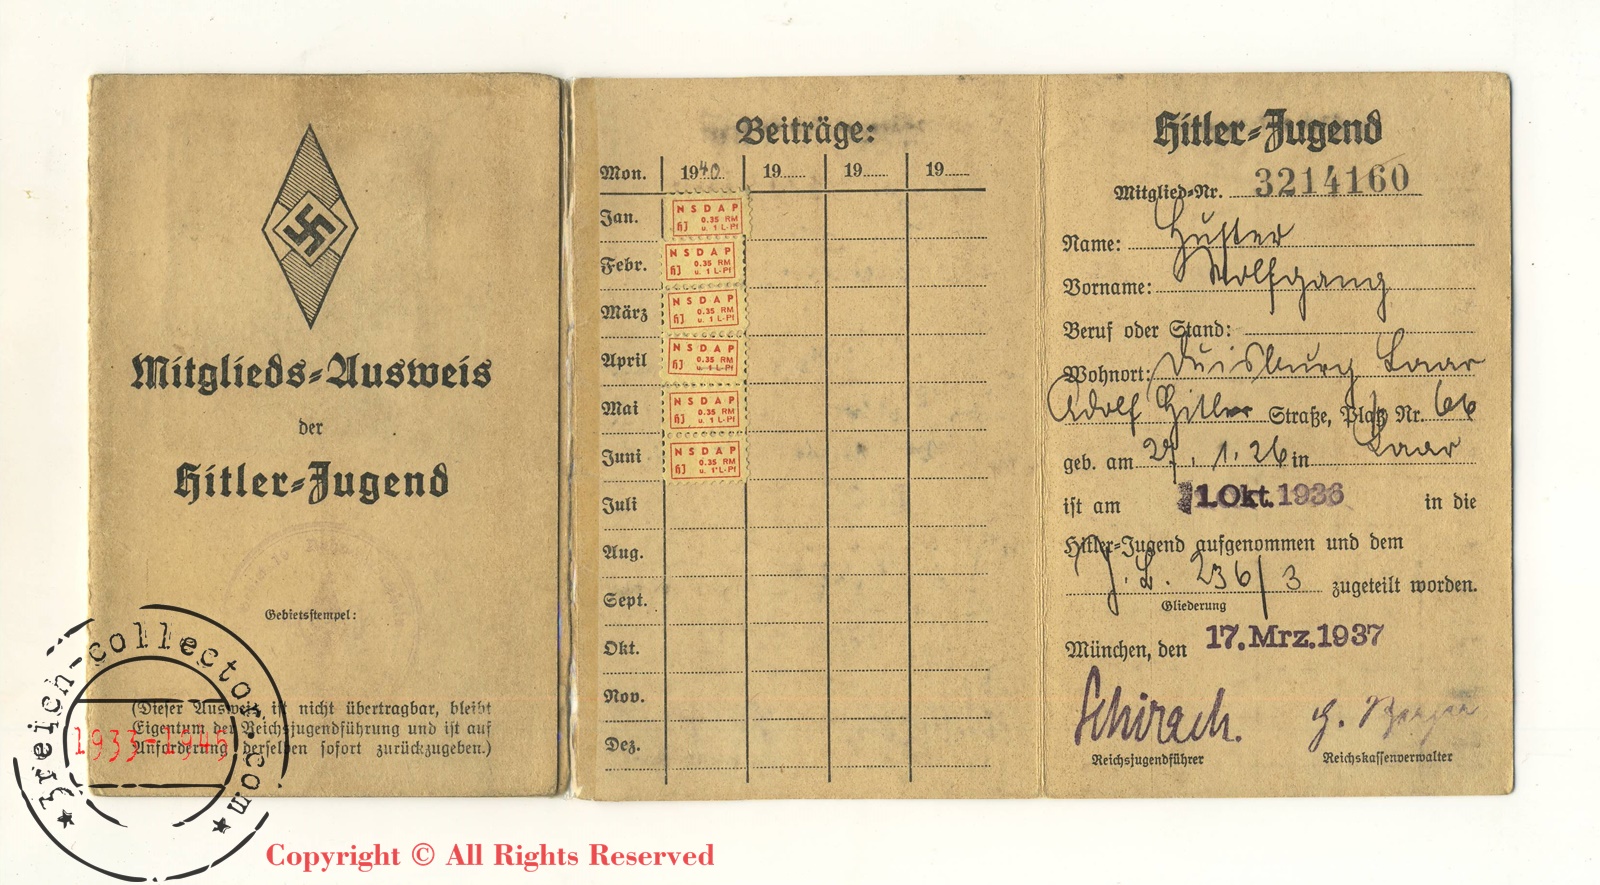 Mitglieds-Ausweis
der
Hitler-Jugend
Gebietsstempel:
(Dieser Ausweis ist nicht übertragbar, bleibt
Eigentum der Reichsjugendführung und ist auf
Anforderung derselben sofort zurückzugeben.)
Beiträge:
Mon. 1940 19 19 19
Jan. NSDAP HJ 0.35 RM u. 1 L-Pf
Febr. NSDAP HJ 0.35 RM u. 1 L-Pf
März NSDAP HJ 0.35 RM u. 1 L-Pf
April NSDAP HJ 0.35 RM u. 1 L-Pf
Mai NSDAP HJ 0.35 RM u. 1 L-Pf
Juni NSDAP HJ 0.35 RM u. 1 L-Pf
Juli
Aug.
Sept.
Okt.
Nov.
Dez.
Hitler-Jugend
Mitglied-Nr. 3214160
Name: Huster
Vorname: Wolfgang
Beruf oder Stand:
Wohnort: Duisburg Laar
Adolf Hitler Straße, Platz Nr. 66
geb. am 27. 1. 26 in Laar
ist am 1. Okt. 1936 in die
Hitler-Jugend aufgenommen und dem
J. B. 236/3 zugeteilt worden.
Gliederung
München, den 17. Mrz. 1937
Schirach.
Reichsjugendführer Reichskassenverwalter
3reich-collector.com
1933-1945
Copyright © All Rights Reserved